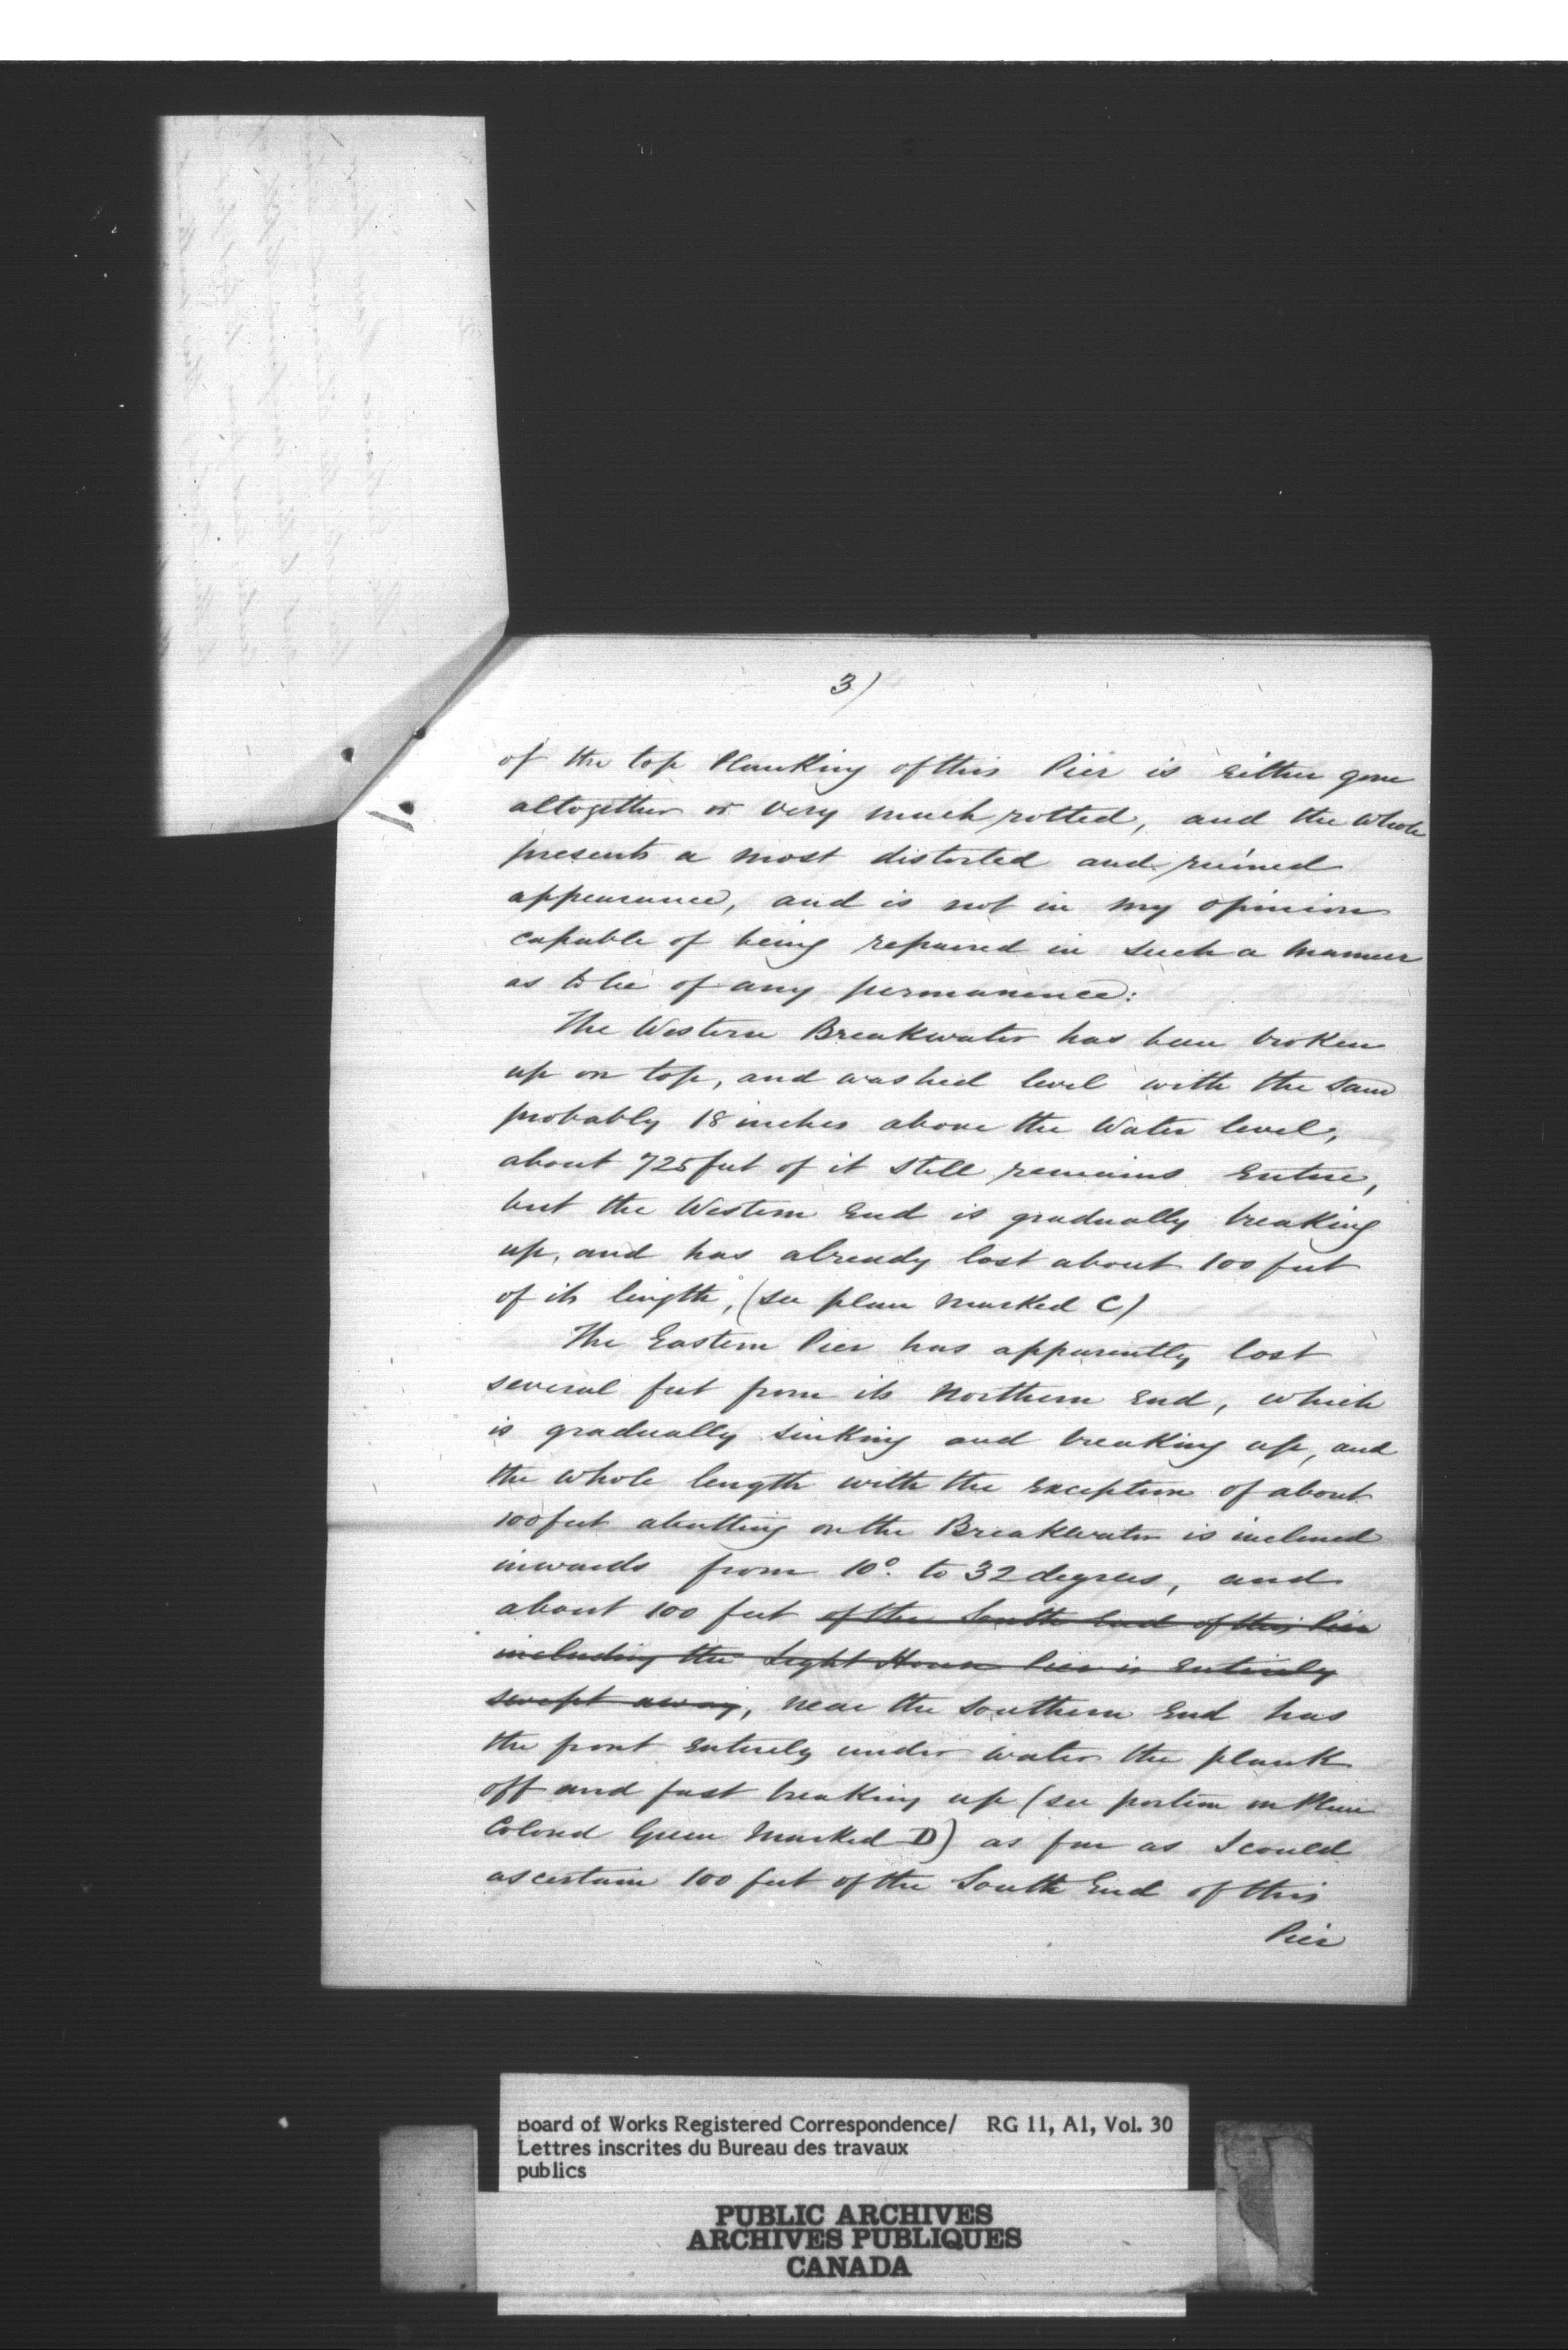 3)
of the top Planking of this Pier is Either gone
altogether or very much rotted, and the whole
presents a most distorted and ruined
appearance, and is not in my opinion
capable of being repaired in such a manner
as to be of any permanence:
The Western Breakwater has been broken
up on top, and washed level with the Sand
probably 18 inches above the Water level,
about 725 feet of it still remains Entire,
but the Western End is gradually breaking
up, and has already lost about 100 feet
of its length, (see plan marked C)
The Eastern Pier has apparently lost
several feet from its Northern End, which
is gradually sinking and breaking up, and
the whole length with the Exception of about
100 feet abutting on the Breakwater is inclined
inwards from 10° to 32 degrees, and
about 100 feet of the South End of this Pier
including the Light House Pier is Entirely
swept away, near the Southern End has
the front Entirely under water the plank
off and fast breaking up (see portion on Plan
Colored Green Marked D) as far as I could
ascertain 100 feet of the South End of this
Pier
Board of Works Registered Correspondence/ RG 11, A1, Vol. 30
Lettres inscrites du Bureau des travaux
publics
PUBLIC ARCHIVES
ARCHIVES PUBLIQUES
CANADA